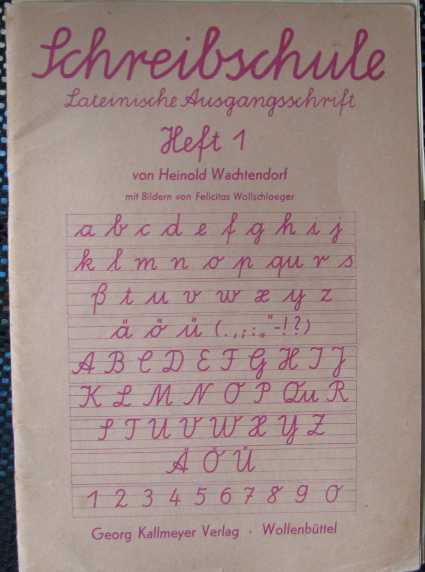 Schreibschule
Lateinische Ausgangsschrift
Heft 1
von Heinold Wachtendorf
mit Bildern von Felicitas Wollschlaeger
a b c d e f g h i j
k l m n o p qu r s
ß t u v w x y z
ä ö ü ( . , ; : „ " - ! ? )
A B C D E F G H I J
K L M N O P Qu R
S T U V W X Y Z
Ä Ö Ü
1 2 3 4 5 6 7 8 9 0
Georg Kallmeyer Verlag · Wollenbüttel